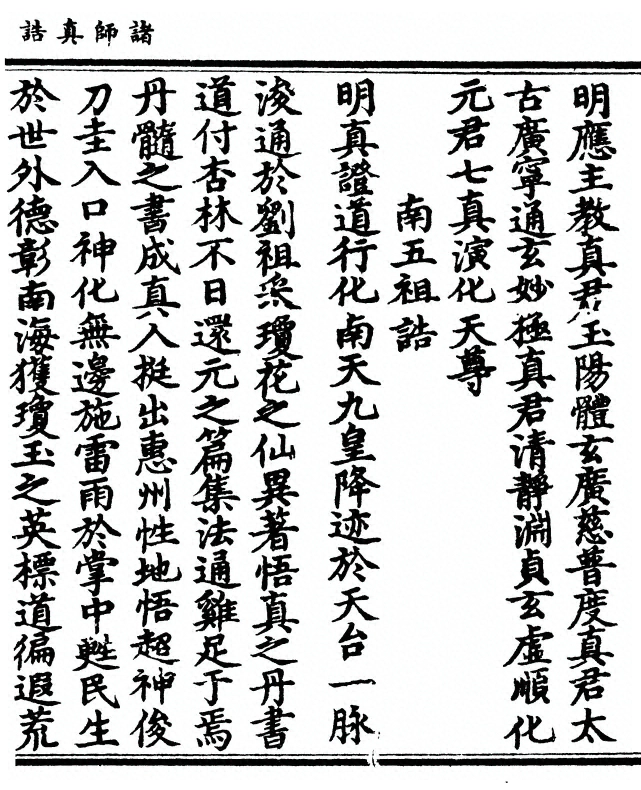 諸師真誥
明應主教真君玉陽體玄廣慈普度真君太
古廣寧通玄妙極真君清靜淵貞玄虛順化
元君七真演化天尊
南五祖誥
明真證道行化南天九皇降迹於天台一脉
浚通於劉祖采瓊花之仙異著悟真之丹書
道付杏林不日還元之篇集法通雞足于焉
丹髓之書成真入挺出惠州性地悟超神俊
刀圭入口神化無邊施雷雨於掌中甦民生
於世外德彰南海獲瓊玉之英標道徧遐荒